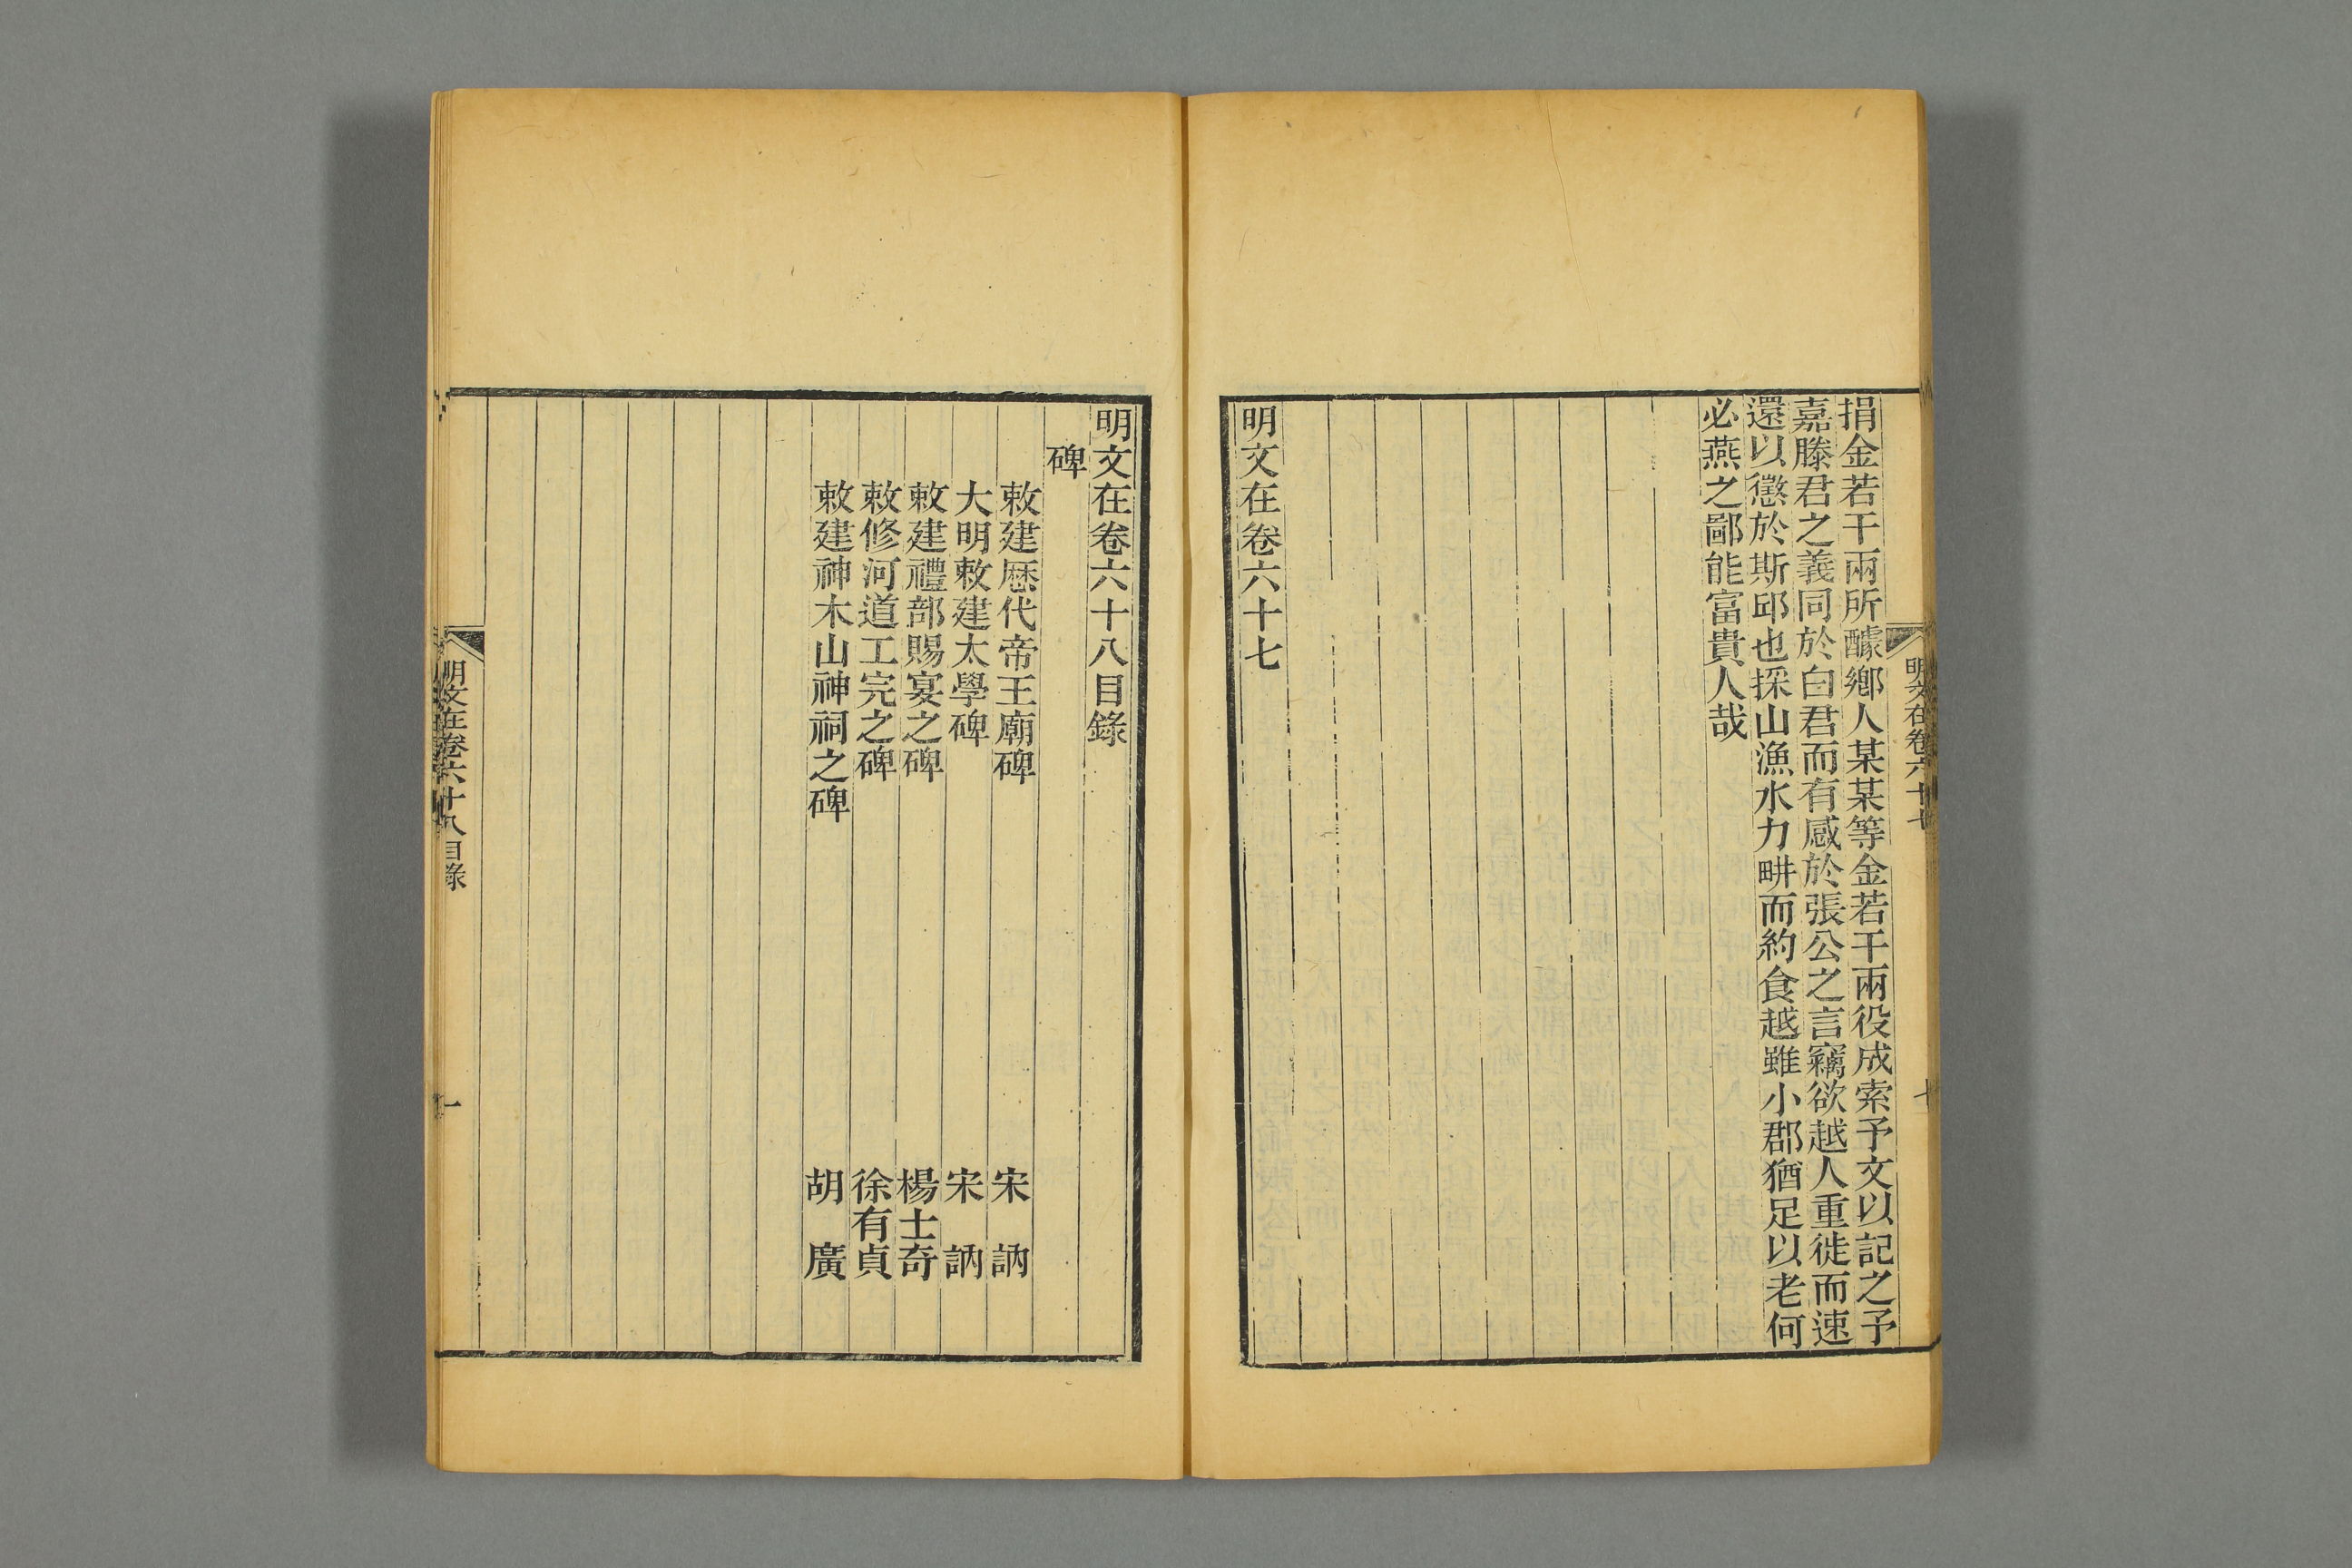 明文在卷六十七
七
捐金若干兩所醵鄉人某某等金若干兩役成索予文以記之予
嘉滕君之義同於白君而有感於張公之言竊欲越人重徙而速
還以懲於斯邱也採山漁水力畊而約食越雖小郡猶足以老何
必燕之鄙能富貴人哉
明文在卷六十七
明文在卷六十八目錄
碑
敕建歷代帝王廟碑 宋訥
大明敕建太學碑 宋訥
敕建禮部賜宴之碑 楊士奇
敕修河道工完之碑 徐有貞
敕建神木山神祠之碑 胡廣
明文在卷六十八目錄
一